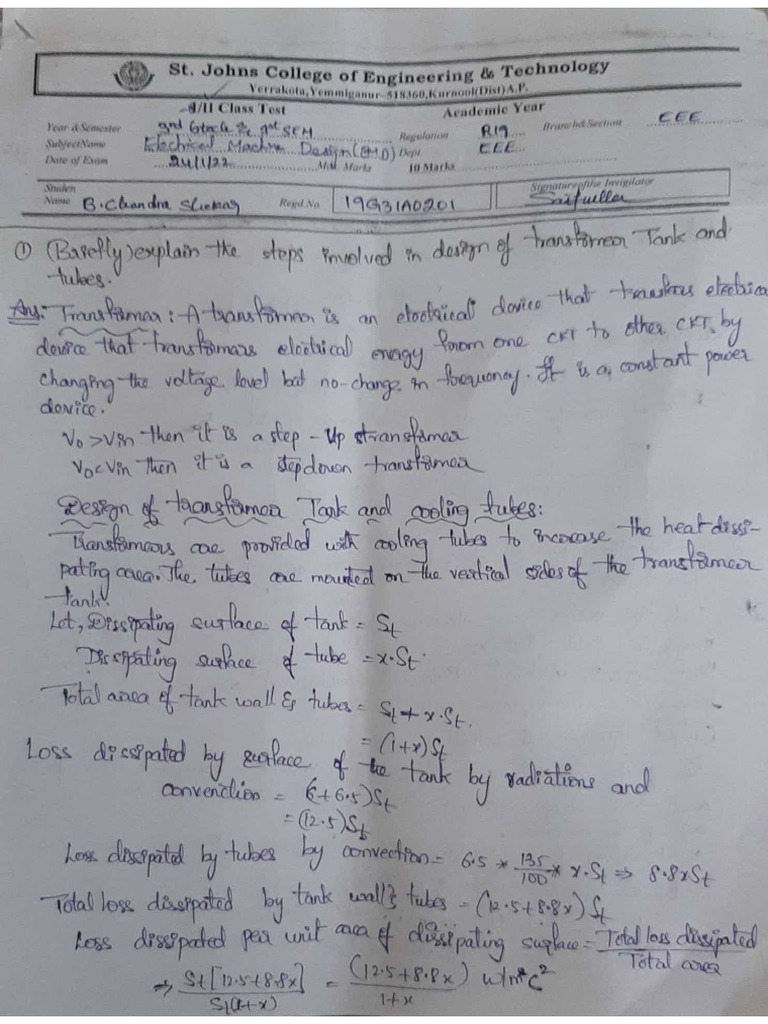 St. Johns College of Engineering & Technology
Yerrakota, Yemmiganur-518360, Kurnool(Dist) A.P.
I/II Class Test Academic Year
Year & Semester Regulation R19 Branch & Section EEE
Subject Name Electrical Machine Design (EMD) Dept EEE
Date of Exam 24/1/22 Mid Marks 10 Marks
Studen Signature of the Invigilator
Name B. Chandra Regd.No 19G31A0201
① (Briefly) explain the steps involved in design of transformer Tank and
tubes.
Ans: Transformer: A transformer is an electrical device that electrica
device that transformers electrical energy from one CKT to other CKT, by
changing the voltage level but no-change in frequency. It is a constant power
device.
Vo > Vin then it is a step-Up transformer
Vo < Vin then it is a step down transformer
Design of transformer Tank and cooling tubes:
Transformers are provided with cooling tubes to increase the heat dissi-
pating area. The tubes are mounted on the vertical sides of the transformer
tank.
Let, Dissipating surface of tank = St
Dissipating surface of tube = x.St
Total area of tank wall & tubes = St + x.St.
= (1+x)St
Loss dissipated by surface of the tank by radiations and
convenction = (6+6.5)St
= (12.5)St
Loss dissipated by tubes by convection = 6.5 * 135/100 * x.St ⇒ 8.8xSt
Total loss dissipated by tank wall & tubes = (12.5+8.8x) St
Loss dissipated per unit area of dissipating surface = Total loss dissipated / Total area
⇒ St[12.5+8.8x] / St(1+x) = (12.5+8.8x) / 1+x w/m²c²